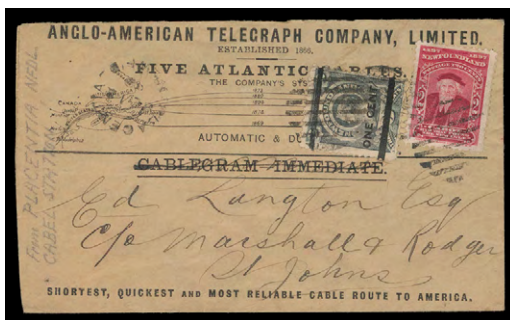 ANGLO-AMERICAN TELEGRAPH COMPANY, LIMITED.
ESTABLISHED 1866.
FIVE ATLANTIC CABLES.
THE COMPANY'S SYS
CANADA
AUTOMATIC & DU
NEWFOUNDLAND
ONE CENT
CABLEGRAM IMMEDIATE
From PLACENTIA NFDL.
CABEL STATION
Ed Langton Esq
C/o Marshall & Rodger
St Johns
SHORTEST, QUICKEST AND MOST RELIABLE CABLE ROUTE TO AMERICA.